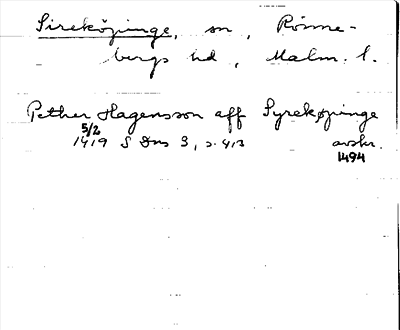 Sireköpinge, sn, Rönne-
bergs hd, Malm. l.
Pether Hagensson aff Syrekøpinge
5/2
1419 S Dns 3, s. 413 avskr.
1494